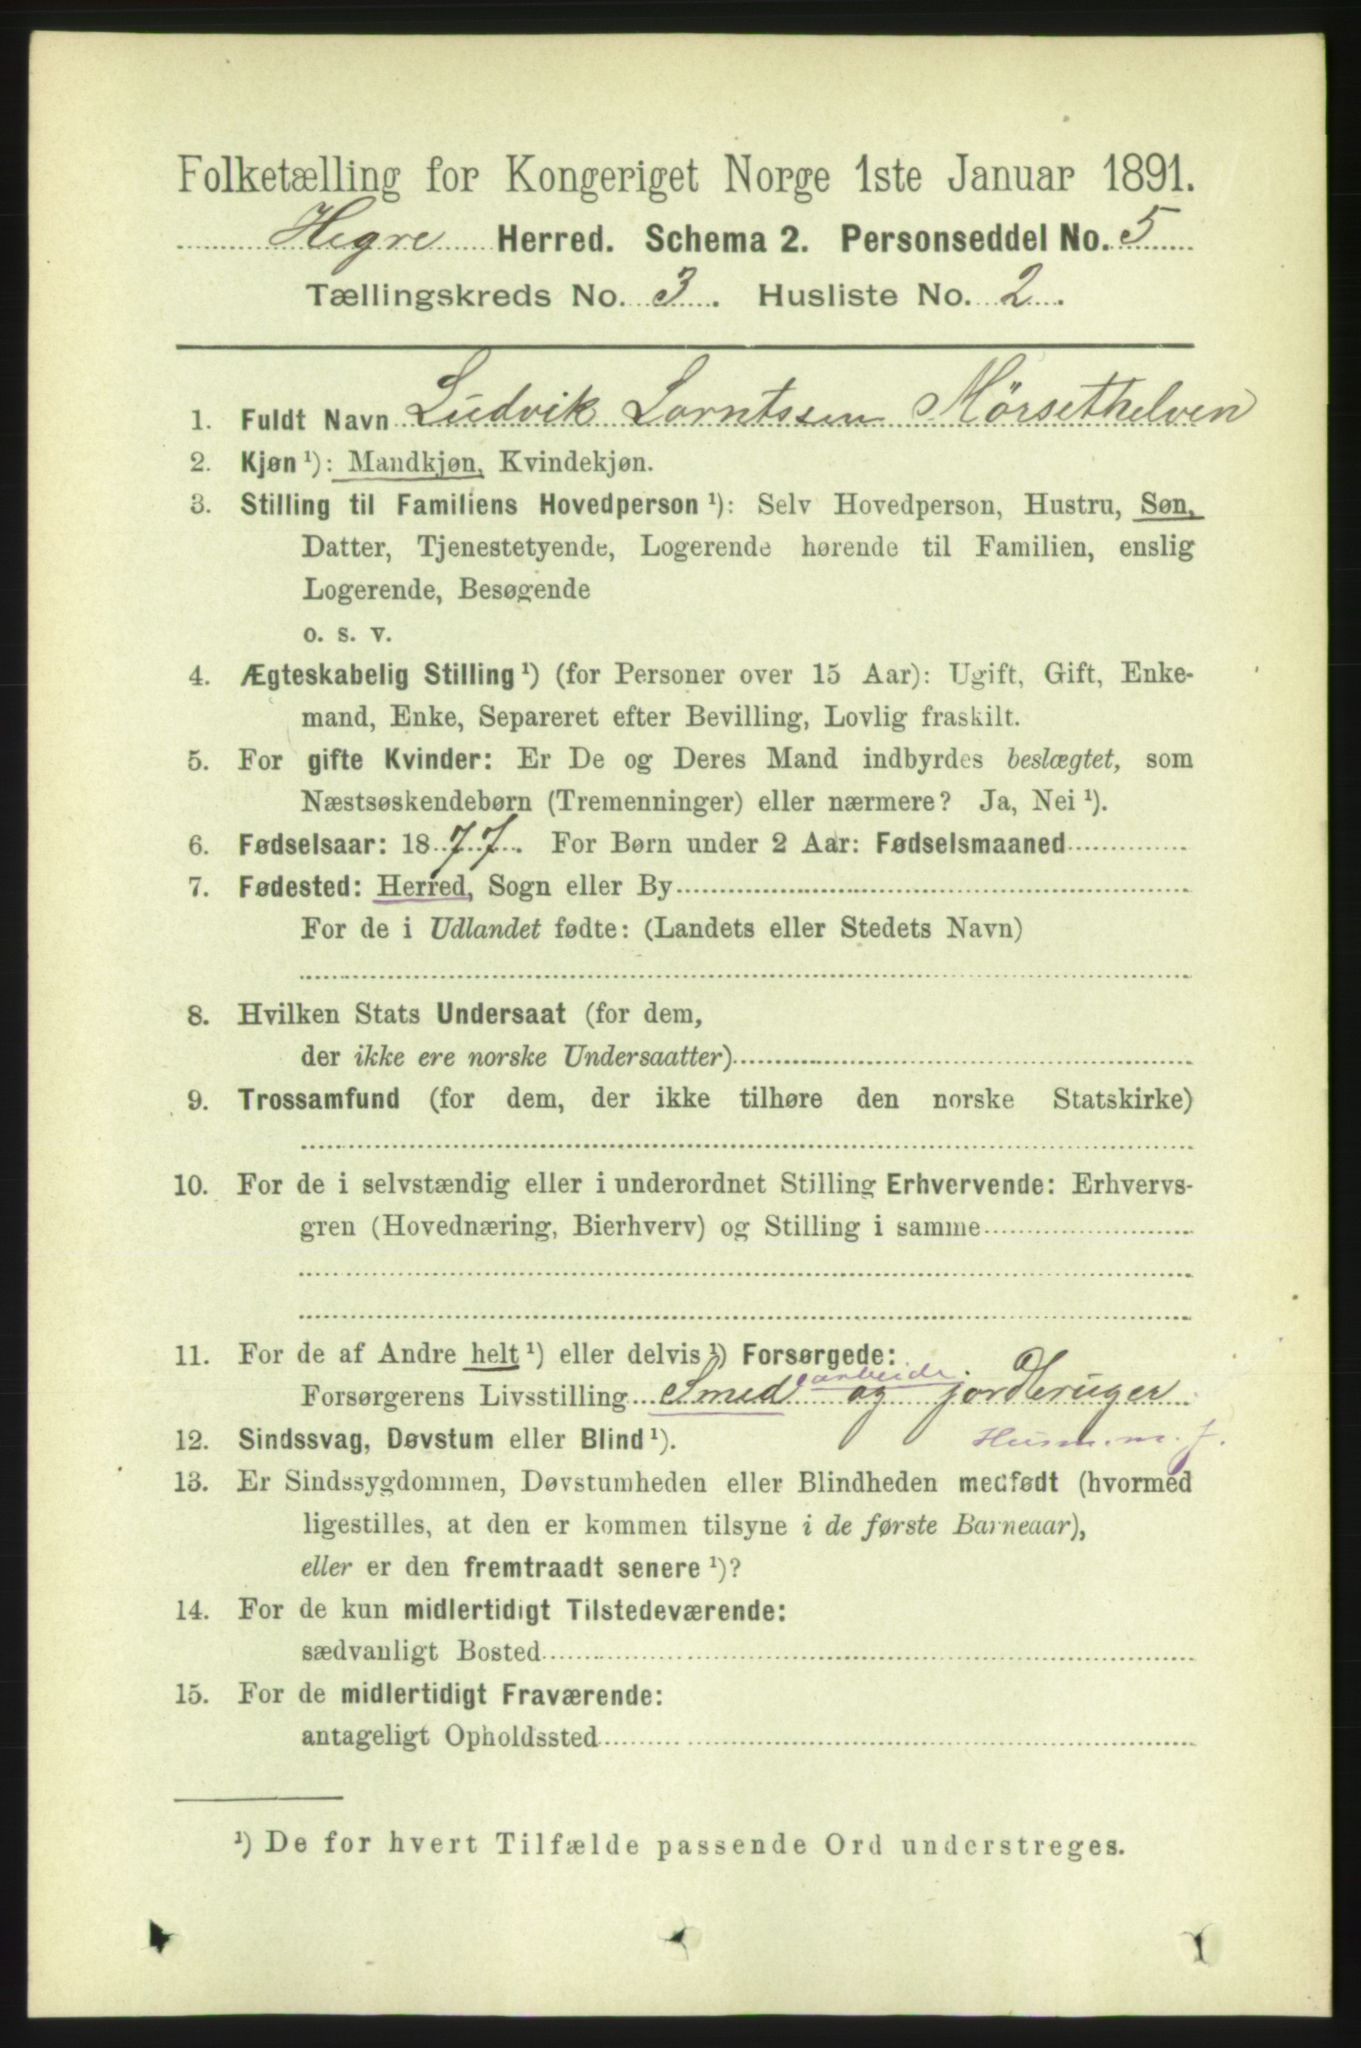 Folketælling for Kongeriget Norge 1ste Januar 1891.
Hegre Herred. Schema 2. Personseddel No. 5
Tællingskreds No. 3. Husliste No. 2.
1. Fuldt Navn Ludvik Larntssen Mörsethelven
2. Kjøn ¹): Mandkjøn, Kvindekjøn.
3. Stilling til Familiens Hovedperson ¹): Selv Hovedperson, Hustru, Søn,
Datter, Tjenestetyende, Logerende hørende til Familien, enslig
Logerende, Besøgende
o. s. v.
4. Ægteskabelig Stilling ¹) (for Personer over 15 Aar): Ugift, Gift, Enke-
mand, Enke, Separeret efter Bevilling, Lovlig fraskilt.
5. For gifte Kvinder: Er De og Deres Mand indbyrdes beslægtet, som
Næstsøskendebørn (Tremenninger) eller nærmere? Ja, Nei ¹).
6. Fødselsaar: 1877. For Børn under 2 Aar: Fødselsmaaned
7. Fødested: Herred, Sogn eller By
For de i Udlandet fødte: (Landets eller Stedets Navn)
8. Hvilken Stats Undersaat (for dem,
der ikke ere norske Undersaatter)
9. Trossamfund (for dem, der ikke tilhøre den norske Statskirke)
10. For de i selvstændig eller i underordnet Stilling Erhvervende: Erhvervs-
gren (Hovednæring, Bierhverv) og Stilling i samme
11. For de af Andre helt ¹) eller delvis ¹) Forsørgede:
arbeide.
Forsørgerens Livsstilling Smed og jordbruger
12. Sindssvag, Døvstum eller Blind ¹). Husm. m. j.
13. Er Sindssygdommen, Døvstumheden eller Blindheden medfødt (hvormed
ligestilles, at den er kommen tilsyne i de første Barneaar),
eller er den fremtraadt senere ¹)?
14. For de kun midlertidigt Tilstedeværende:
sædvanligt Bosted
15. For de midlertidigt Fraværende:
antageligt Opholdssted
¹) De for hvert Tilfælde passende Ord understreges.